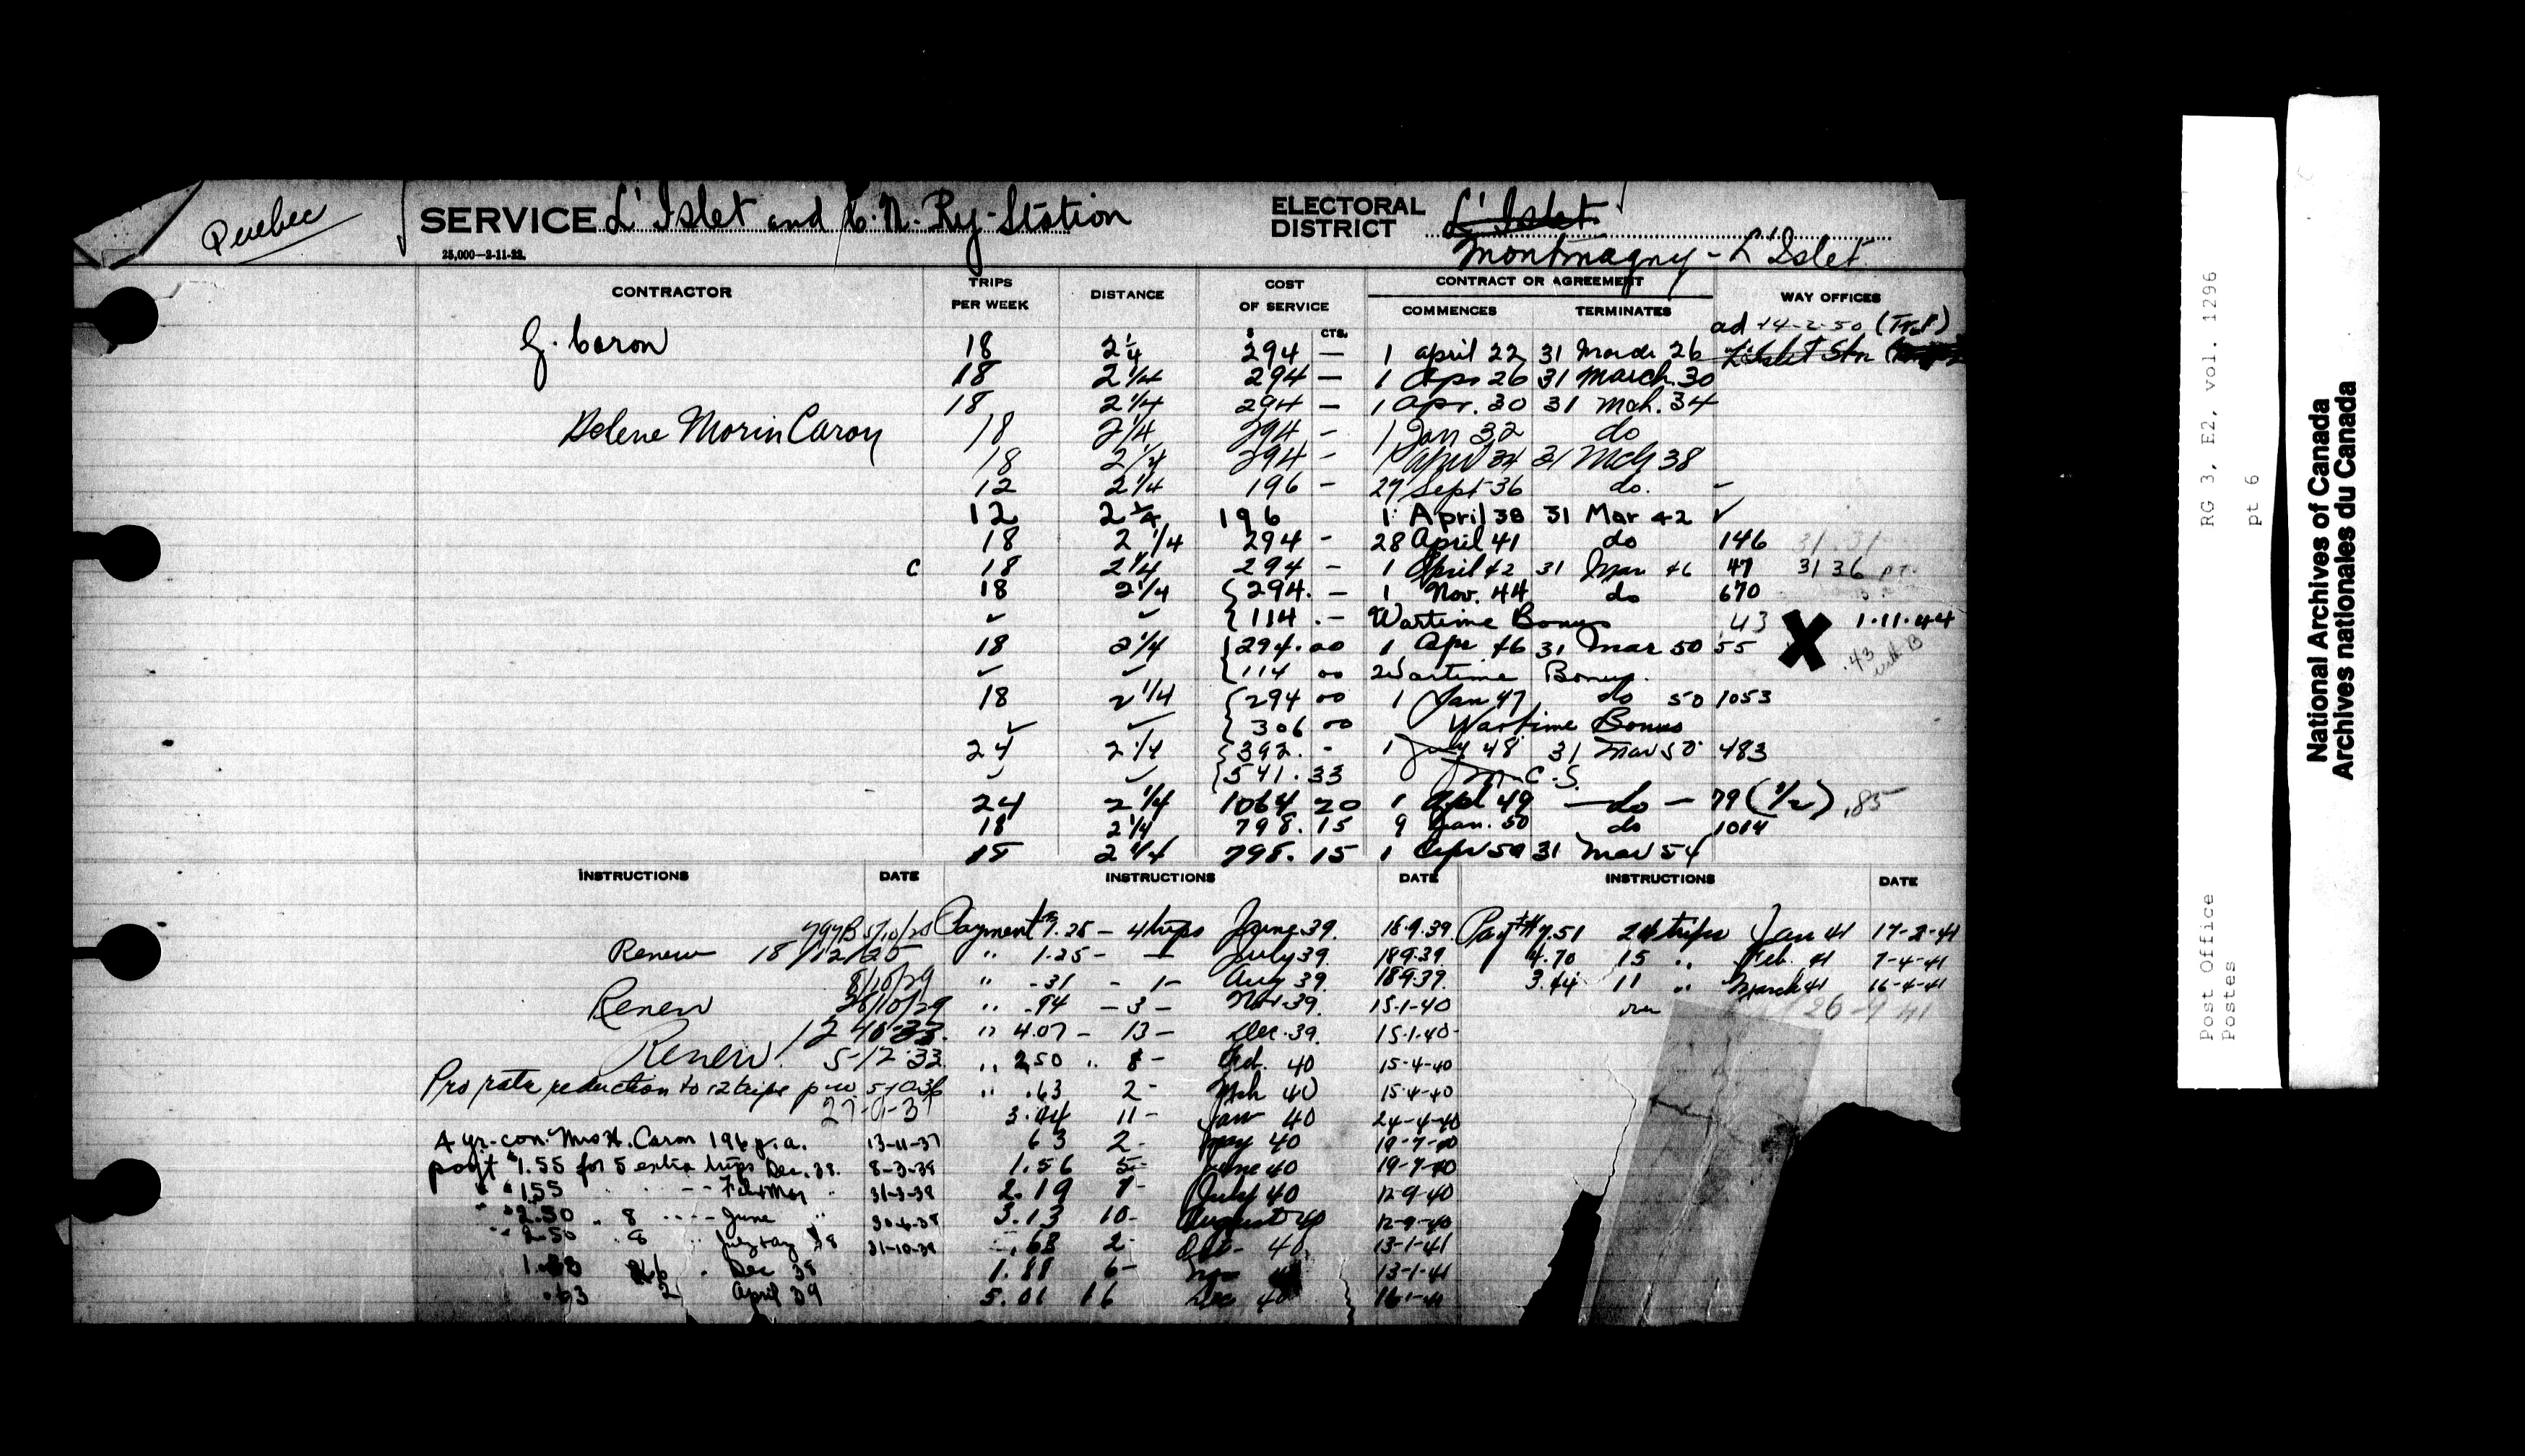 Quebec
SERVICE L'Islet and C.N. Ry. Station
ELECTORAL DISTRICT L'Islet
Montmagny - L'Islet
25,000—2-11-22.
CONTRACTOR TRIPS PER WEEK DISTANCE COST OF SERVICE CONTRACT OR AGREEMENT WAY OFFICES
COMMENCES TERMINATES
$ CTS.
ad 14-2-50
G. Caron 18 2 1/4 294 — 1 April 22 31 March 26 L'Islet Stn
18 2 1/4 294 — 1 Apr 26 31 March. 30
18 2 1/4 294 — 1 Apr. 30 31 Mch. 34
Helene Morin Caron 18 2 1/4 294 - 1 Jan 32 do
18 2 1/4 294 - 1 April 34 31 Mch 38
12 2 1/4 196 - 27 Sept 36 do.
12 2 1/4 196 1 April 38 31 Mar 42 ✓
18 2 1/4 294 - 28 April 41 do 146
c 18 2 1/4 294 - 1 April 42 31 Mar 46 47 31 36
18 2 1/4 {294. — 1 Nov. 44 do 670
✓ ✓ {114 . — Wartime Bonus 43 X 1-11-44
18 2 1/4 {294.00 1 Apr 46 31 Mar 50 55 .43
✓ ✓ {114 00 Wartime Bonus.
18 2 1/4 {294 00 1 Jan 47 do 50 1053
✓ ✓ {306 00 Wartime Bonus
24 2 1/4 {392. - 1 July 48 31 Mar 50 483
✓ ✓ {541.33 C.S.
24 2 1/4 1064 20 1 Apl 49 — do — 79 (1/2) .85
18 2 1/4 798.15 9 Jan. 50 do 1014
15 2 1/4 798.15 1 Apr 50 31 Mar 54
INSTRUCTIONS DATE INSTRUCTIONS DATE INSTRUCTIONS DATE
Renew 18/12/25
8/10/29
Renew 28/10/29
Renew. 5-12-33
Pro rata reduction to 12 trips p.w. 5-10-36
4 yr. con. Mrs H. Caron 196 p.a. 13-11-37
payt $1.55 for 5 extra trips Dec. 8-3-38
" $1.55 - - Feb & Mar 31-3-38
" $2.50 " 8 - - - - June " 30-6-38
" 2.50 " 8 " 38 31-10-38
Dec 38
.63 2 April 39
Payment 1.25 — 4 trips June 39. 18.9.39
" 1.25 - — July 39 18939
" .31 - 1 - Aug 39 18939
" .94 - 3 - Nov. 39 15-1-40
" 4.07 - 13 - Dec. 39. 15-1-40
" 2.50 " 8 - Feb. 40 15-4-40
" .63 2 - Mch 40 15-4-40
11 - Jan 40 24-4-40
63 2 - May 40 19-7-40
1.56 5 - June 40 19-7-40
2.19 7 - July 40 12-9-40
3.13 10 - August 40 12-9-40
2 - Oct. 40 13-1-41
1.88 6 - 13-1-41
5.01 16 Dec 40 16-1-41
Payt 7.51 24 trips Jan 41 17-2-41
4.70 15 " Feb. 41 7-4-41
3.44 11 " March 41 16-4-41
over
Post Office RG 3, E2, vol. 1296
Postes pt 6
National Archives of Canada
Archives nationales du Canada